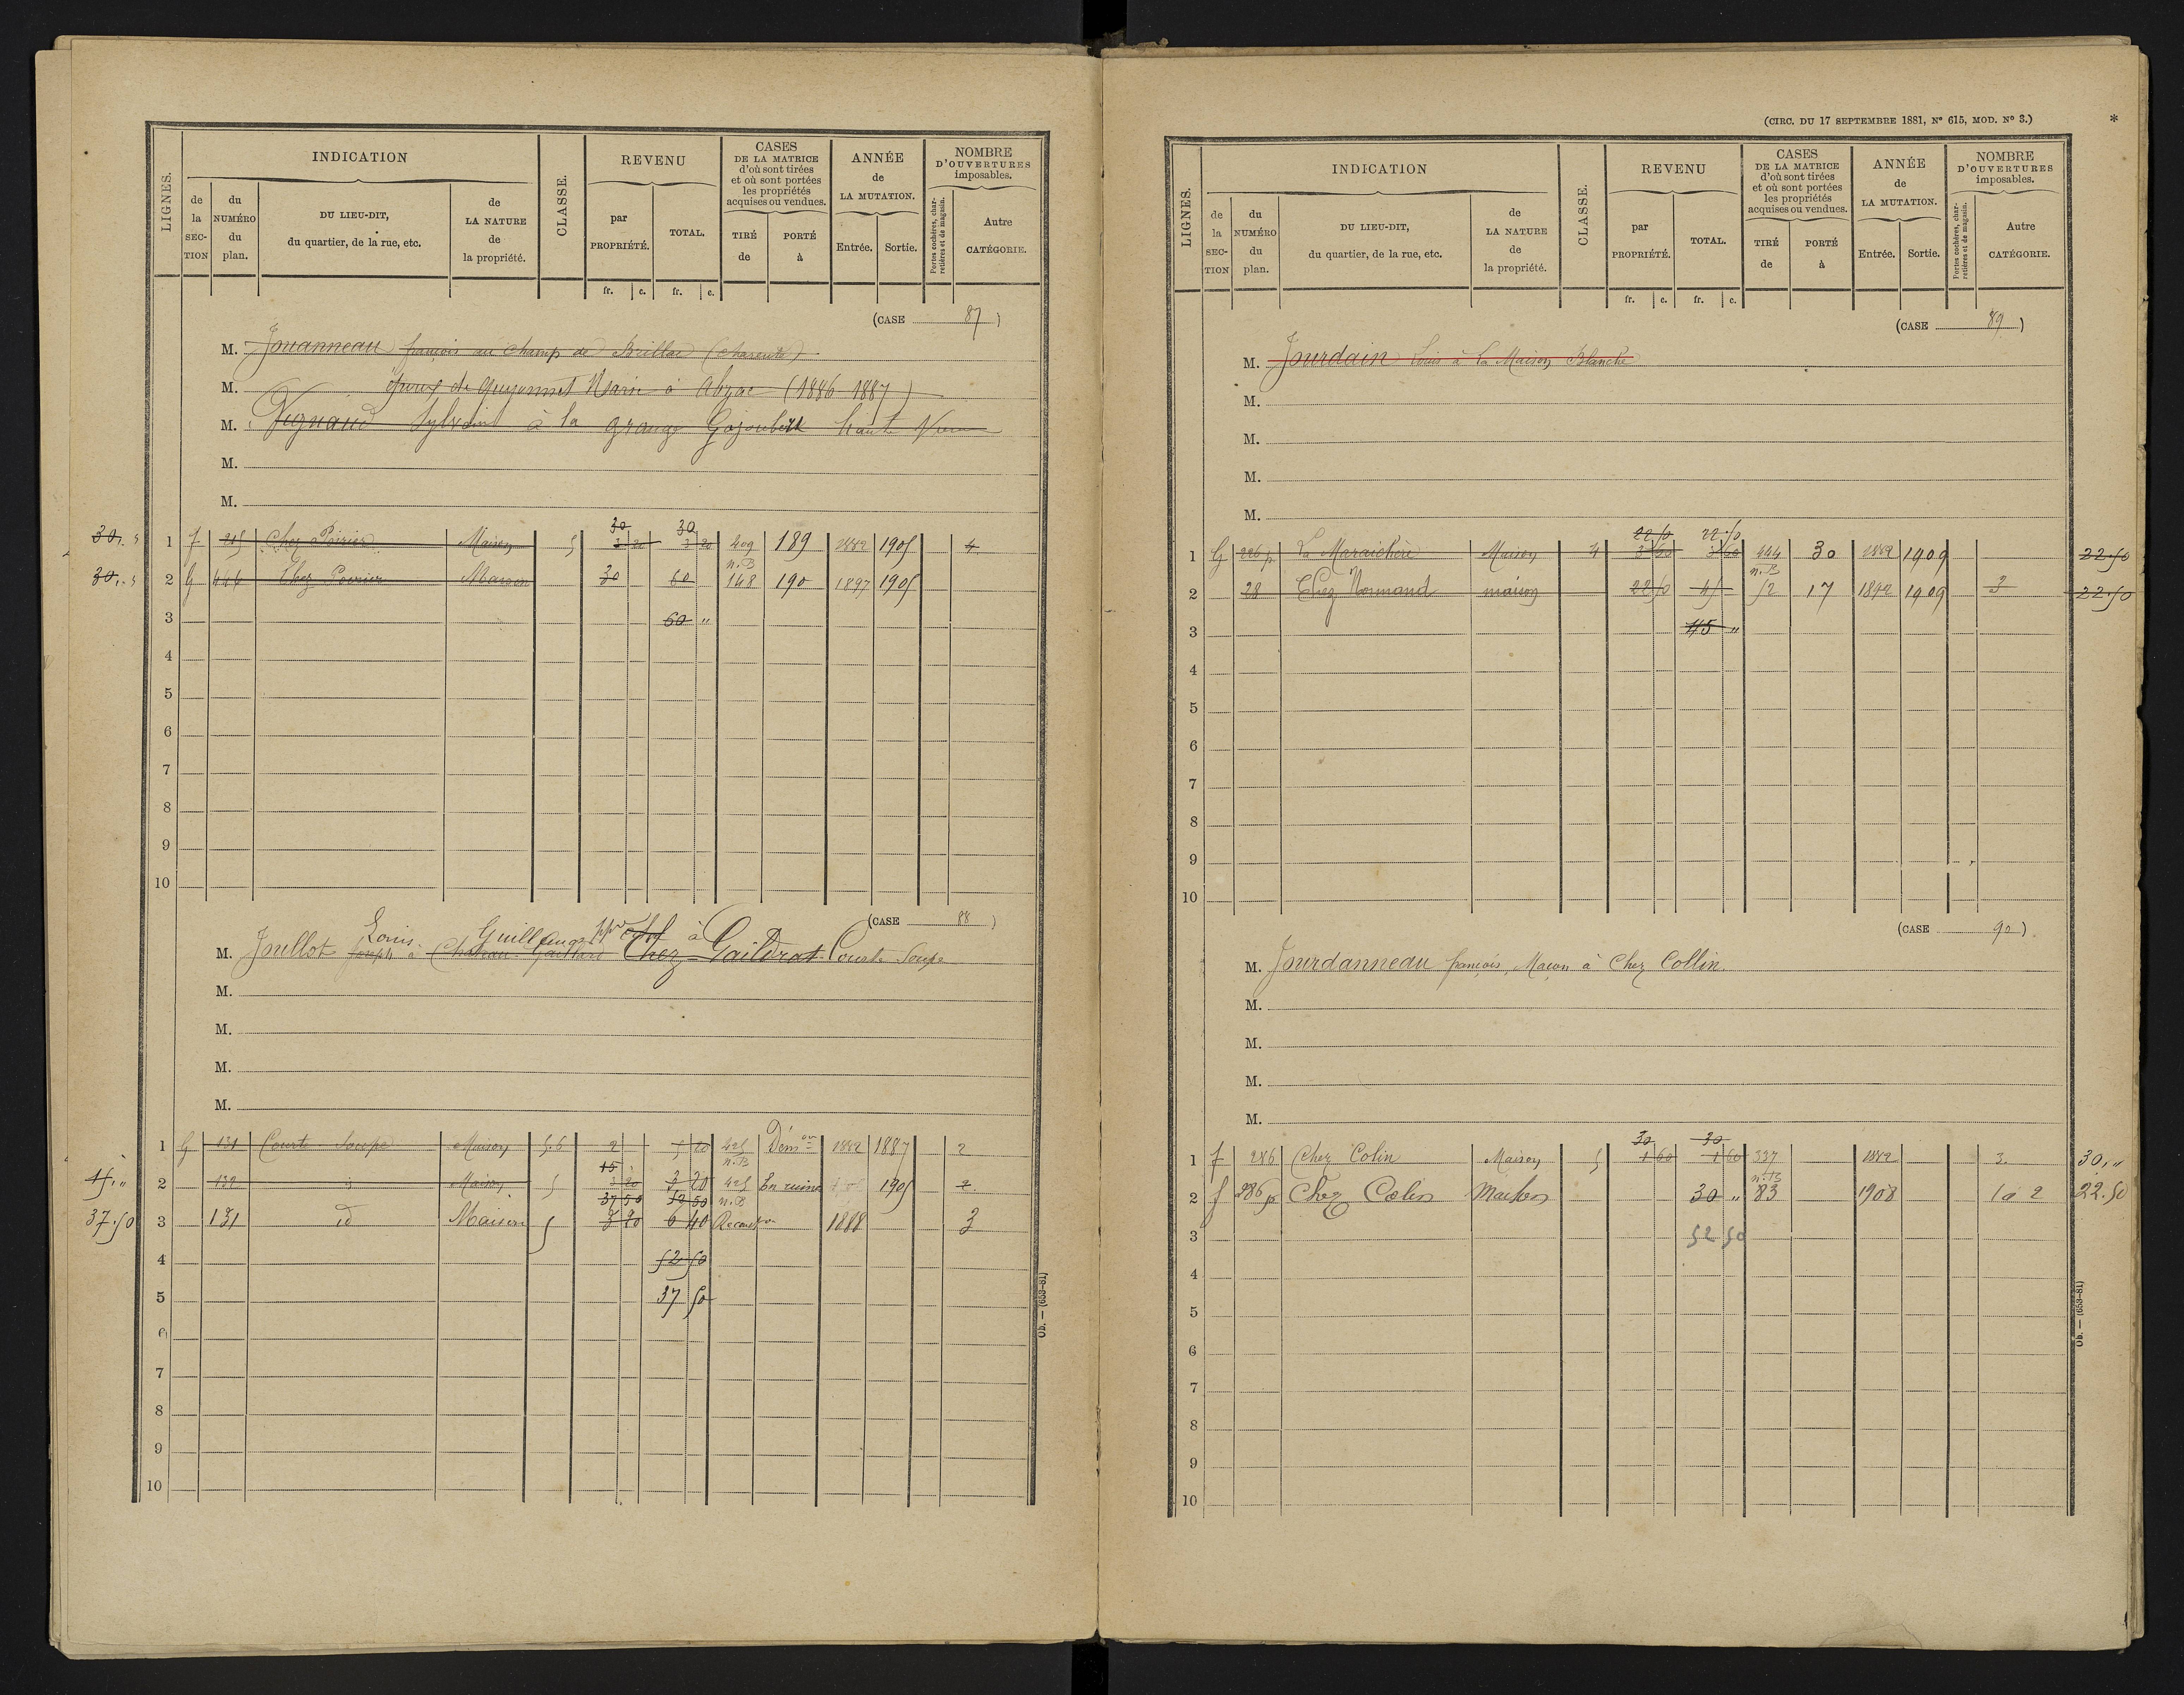 LIGNES.
INDICATION
de la SEC-TION
du NUMÉRO du plan.
DU LIEU-DIT, du quartier, de la rue, etc.
de LA NATURE de la propriété.
CLASSE.
REVENU
par PROPRIÉTÉ.
TOTAL.
fr. c. fr. c.
CASES DE LA MATRICE d'où sont tirées et où sont portées les propriétés acquises ou vendues.
TIRÉ de
PORTÉ à
ANNÉE de LA MUTATION.
Entrée. Sortie.
NOMBRE D'OUVERTURES imposables.
Portes cochères, charretières et de magasin.
Autre CATÉGORIE.
(CASE 87)
M. Jouanneau françois au Champ de Brillac (Charente)
M. Marie à Abzac (1886-1887)
M. Sylvain à la grange Gajoubert haute
M.
M.
30
30
1 f 215 Chez Poirier Maison 5 3 20 3 20 409 189 1882 1905 4
n.B
2 G 446 Chez Poirier Maison 30 60 148 190 1897 1905
3 60 "
4
5
6
7
8
9
10
(CASE 88)
Louis
M. Joullot Joseph à Château Gaillard Chez Gaildrat Courte Soupe
M.
M.
M.
M.
1 G 131 Courte Soupe Maison 5.6 2 5 20 425 Démon 1882 1887 2
15 n.B
15," 2 132 Maison 5 3 20 425 En ruine 1905 2
37 50 52 50 n.B
37.50 3 131 id Maison 5 3 20 6 40 1888 3
4 52 50
5 37 50
6
7
8
9
10
Ob. — (653-81)
(CIRC. DU 17 SEPTEMBRE 1881, N° 615, MOD. N° 3.)
*
LIGNES.
INDICATION
de la SEC-TION
du NUMÉRO du plan.
DU LIEU-DIT, du quartier, de la rue, etc.
de LA NATURE de la propriété.
CLASSE.
REVENU
par PROPRIÉTÉ.
TOTAL.
fr. c. fr. c.
CASES DE LA MATRICE d'où sont tirées et où sont portées les propriétés acquises ou vendues.
TIRÉ de
PORTÉ à
ANNÉE de LA MUTATION.
Entrée. Sortie.
NOMBRE D'OUVERTURES imposables.
Portes cochères, charretières et de magasin.
Autre CATÉGORIE.
(CASE 89)
M. Jourdain Louis à La Maison Blanche
M.
M.
M.
M.
22 50 22.50
1 G 226 p La Maraichère Maison 4 3 60 3 60 444 30 1882 1909 22.50
n.B
2 28 Chez Normand maison 22 50 45 52 17 1892 1909 3 22.50
3 45 "
4
5
6
7
8
9
10
(CASE 90)
M. Jourdanneau françois, Maçon à Chez Collin
M.
M.
M.
M.
30 30
1 f 286 Chez Colin Maison 5 1 60 1 60 337 1882 3. 30,"
n.B
2 f 286 p Chez Colin Maison 30 " 83 1908 1 à 2 22.50
3 52 50
4
5
6
7
8
9
10
Ob. — (653-81)